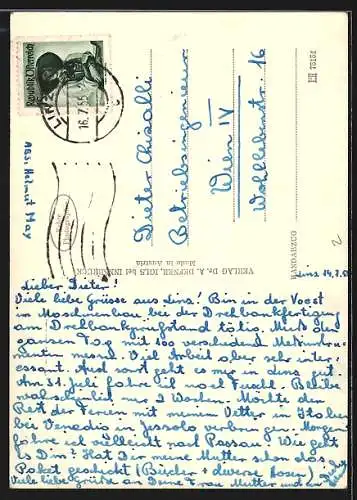 Republik Österreich
LINZ
16.7.55
Abs: Helmut May
Dieter Chizalli
Betriebsingenieur
Wien IV
Wohllebenstr. 16
HANDABZUG
VERLAG Dr. A. DEFNER, IGLS bei INNSBRUCK
Made in Austria
2
Linz 14.7.
Lieber Dieter!
Viele liebe Grüsse aus Linz! Bin in der Voest
im Maschinenbau bei der Drehbankfertigung
am Drehbankprüfstand tätig. Muß den
ganzen Tag mit 100 verschieden Meßinstru-
menten messen. Viel Arbeit aber sehr inter-
essant. Auch sonst geht es mir in Linz gut.
Am 31. Juli fahre ich nach Fuschl. Bleibe
wahrscheinlich nur 2 Wochen. Möchte den
Rest der Ferien mit meinen Vetter in Italien
bei Venedig in Jessolo verbringen. Morgen
fahre ich vielleicht nach Passau. Wie geht
es Dir? Hat Dir meine Mutter schon das
Paket geschickt (Bücher + diverse Hosen)
Viele liebe Grüße an Deine Frau Mutter und